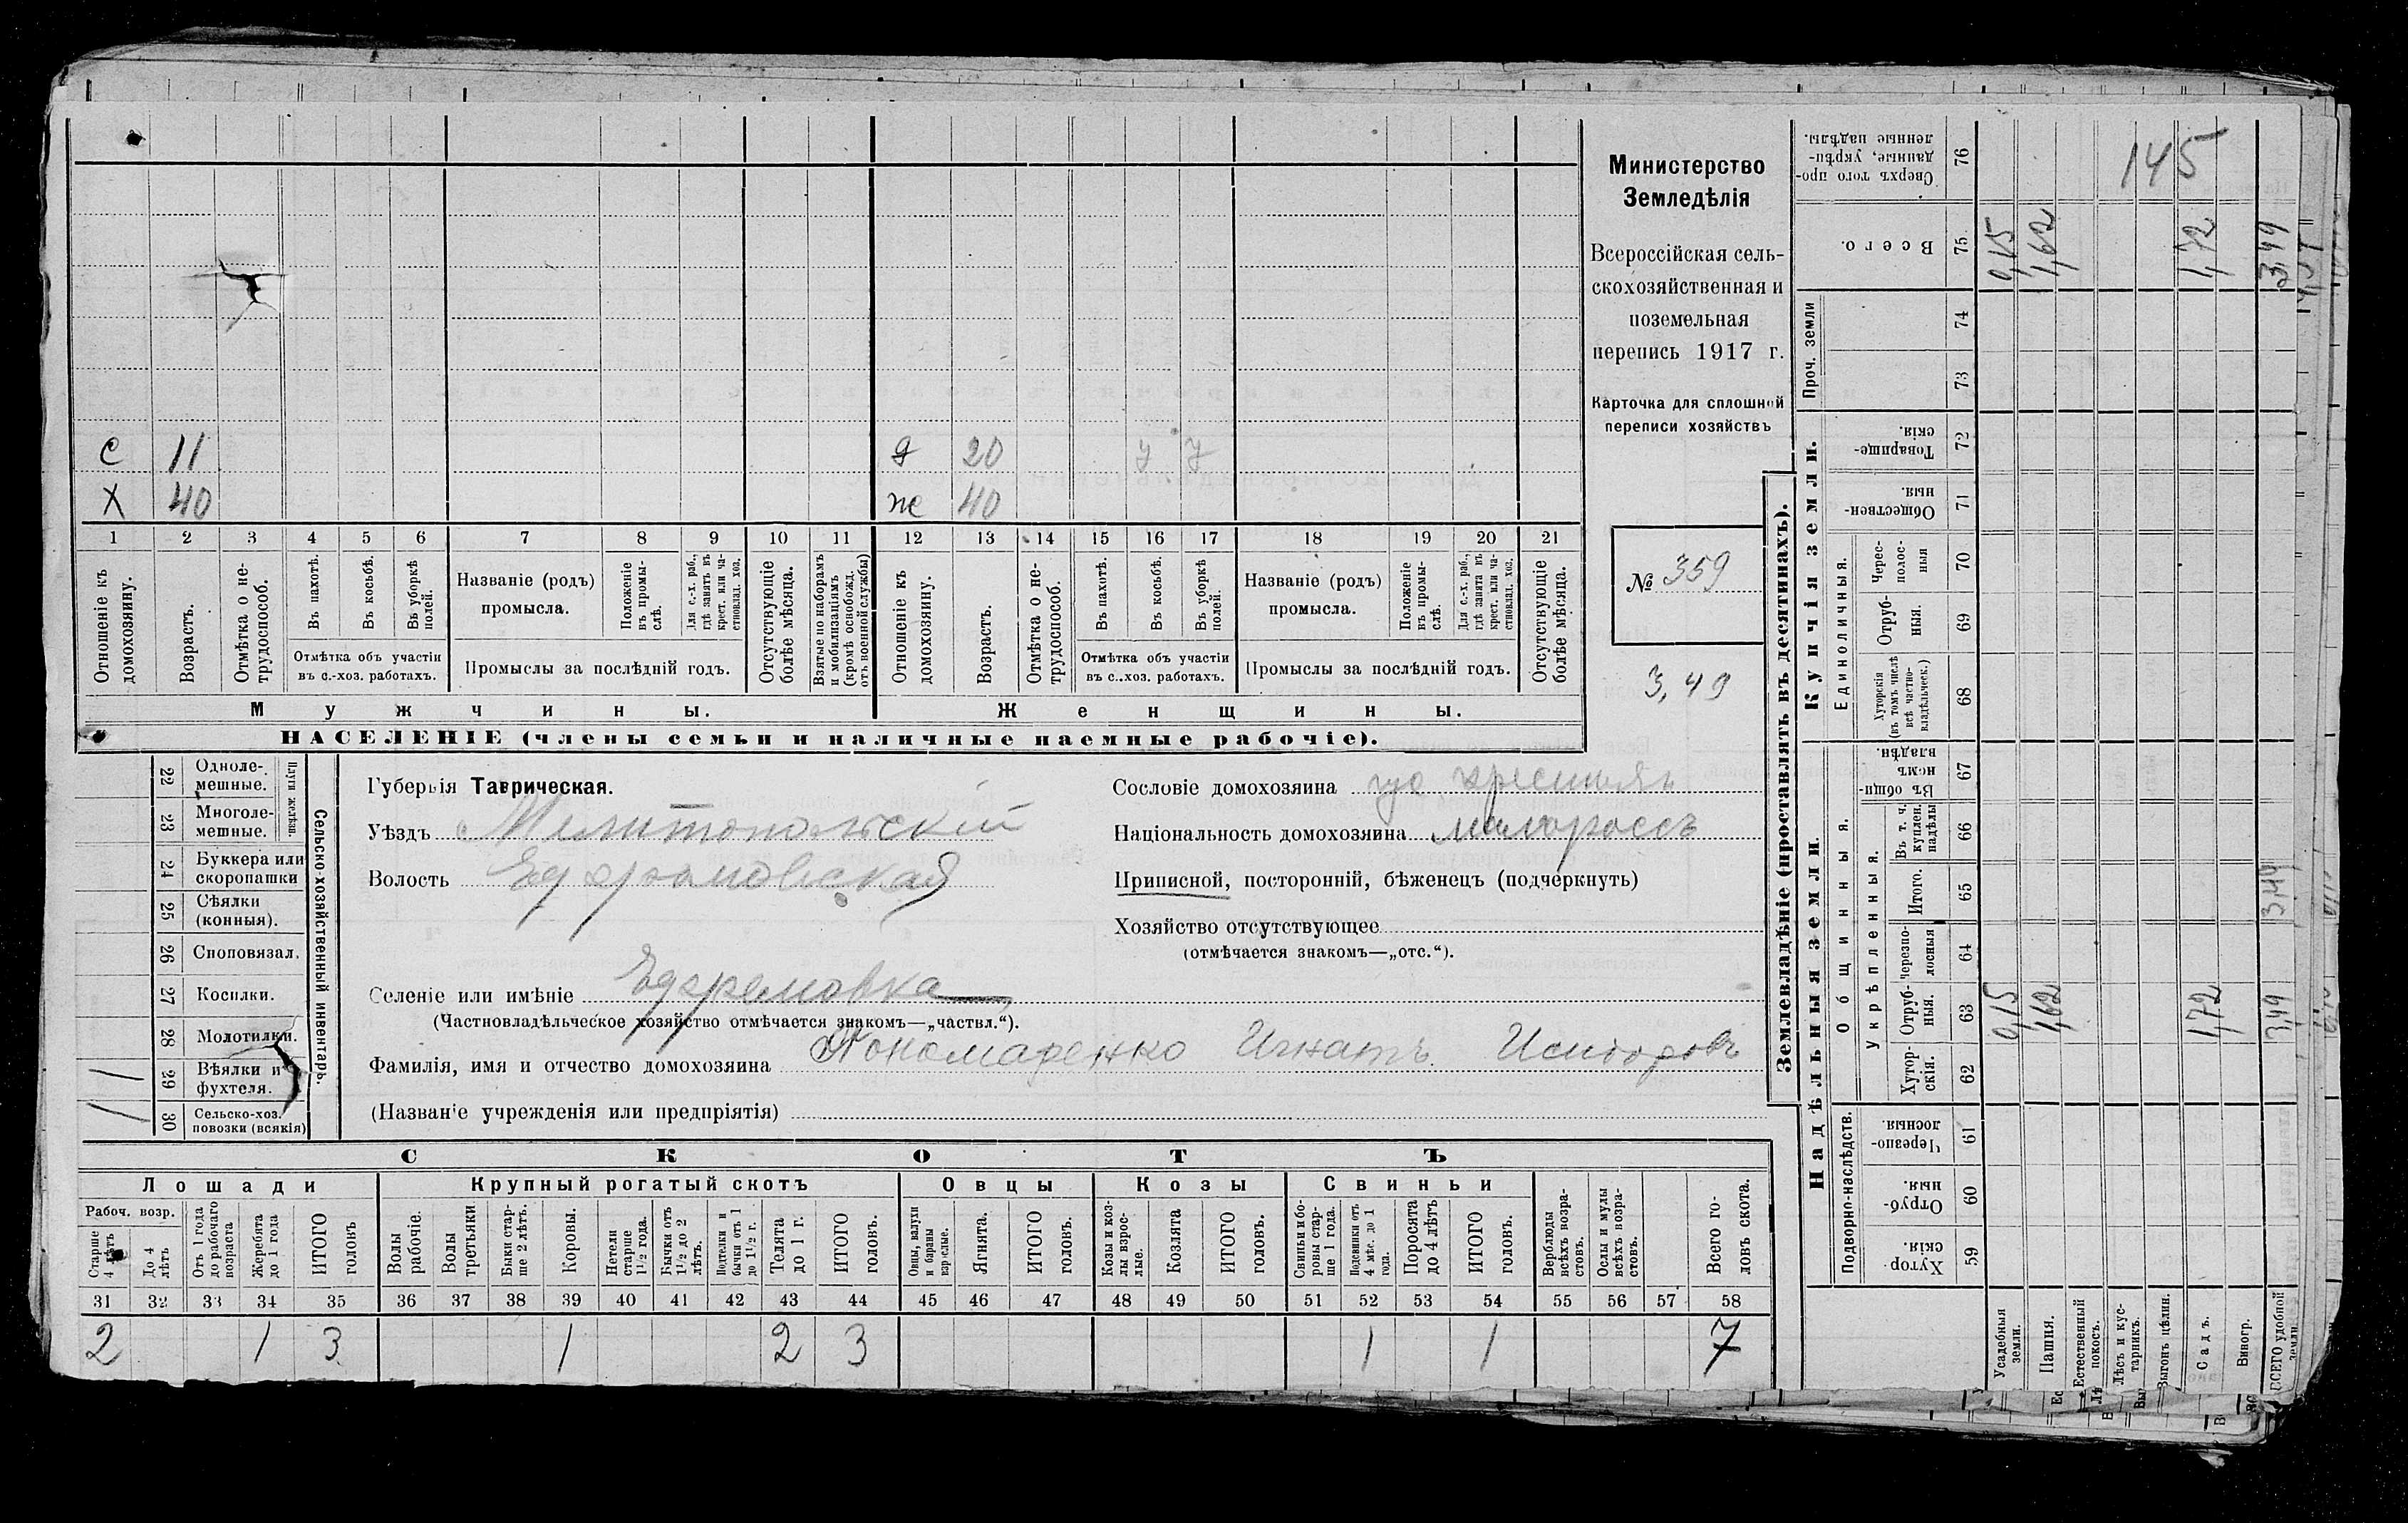 Министерство
Земледѣлія
Всероссійская сель-
скохозяйственная и
поземельная
перепись 1917 г.
Карточка для сплошной
переписи хозяйствъ
№ 359
3,49
145
С 11 д 20 У У
Х 40 ж 40
1 2 3 4 5 6 7 8 9 10 11 12 13 14 15 16 17 18 19 20 21
Отношеніе къ домохозяину.
Возрастъ.
Отмѣтка о не-трудоспособ.
Въ пахотѣ.
Въ косьбѣ.
Въ уборкѣ полей.
Отмѣтка объ участіи
въ с.-хоз. работахъ.
Названіе (родъ)
промысла.
Положеніе въ промы-слѣ.
Для с.-х. раб., гдѣ занятъ въ крест. или ча-стновлад. хоз.
Промыслы за послѣдній годъ.
Отсутствующіе болѣе мѣсяца.
Взятые по наборамъ и мобилизаціямъ (кромѣ освобожд. отъ военной службы)
Отношеніе къ домохозяину.
Возрастъ.
Отмѣтка о не-трудоспособ.
Въ пахотѣ.
Въ косьбѣ.
Въ уборкѣ полей.
Отмѣтка объ участіи
въ с.-хоз. работахъ.
Названіе (родъ)
промысла.
Положеніе въ промы-слѣ.
Для с.-х. раб., гдѣ занята въ крест. или ча-стновлад. хоз.
Промыслы за послѣдній годъ.
Отсутствующіе болѣе мѣсяца.
Мужчины. Женщины.
НАСЕЛЕНІЕ (члены семьи и наличные наемные рабочіе).
Сельско-хозяйственный инвентарь.
Плуги желѣзн.
22 Одноле-мешные.
23 Многоле-мешные.
24 Буккера или скоропашки
25 Сѣялки (конныя).
26 Сноповязал.
27 Косилки.
28 Молотилки.
29 Вѣялки и фухтеля. 1
30 Сельско-хоз. повозки (всякія) 1
Губернія Таврическая.
Уѣздъ Мелитопольскій
Волость Ефремовская
Селеніе или имѣніе Ефремовка
(Частновладѣльческое хозяйство отмѣчается знакомъ—„частвл.“).
Фамилія, имя и отчество домохозяина Пономаренко Игнатъ Исидоров
(Названіе учрежденія или предпріятія)
Сословіе домохозяина изъ крестьян
Національность домохозяина малороссъ
Приписной, посторонній, бѣженецъ (подчеркнуть)
Хозяйство отсутствующее
(отмѣчается знакомъ—„отс.“).
СКОТЪ
Лошади Крупный рогатый скотъ Овцы Козы Свиньи
Рабоч. возр.
Старше 4 лѣтъ
До 4 лѣтъ
Отъ 1 года до рабочаго возраста
Жеребята до 1 года
ИТОГО головъ
Волы рабочіе.
Волы третьяки
Быки стар-ше 2 лѣтъ.
Коровы.
Нетели старше 1½ года.
Бычки отъ 1½ до 2 лѣтъ.
Подтелки и бычки отъ 1 до 1½ г.
Телята до 1 г.
ИТОГО головъ.
Овцы, валухи и бараны взрослые.
Ягнята.
ИТОГО головъ.
Козы и коз-лы взрос-лые.
Козлята
ИТОГО головъ.
Свиньи и бо-ровы стар-ше 1 года.
Подсвинки отъ 4 мѣс. до 1 года.
Поросята до 4 лѣтъ
ИТОГО головъ.
Верблюды всѣхъ возра-стовъ.
Ослы и мулы всѣхъ возра-стовъ.
Всего го-ловъ скота.
31 32 33 34 35 36 37 38 39 40 41 42 43 44 45 46 47 48 49 50 51 52 53 54 55 56 57 58
2 1 3 1 2 3 1 1 7
Землевладѣніе (проставлять въ десятинахъ).
Купчія земли.
Надѣльныя земли.
Проч. земли
Единоличныя.
Общинныя.
Укрѣпленныя.
Подворно-наслѣдств.
Сверхъ того про-данные, укрѣп-ленные надѣлы. 76
Всего. 75 0,15 1,62 1,72 3,49
74
73
Товарище-скія. 72
Обществен-ныя. 71
Черес-полос-ныя 70
Отруб-ныя. 69
Хуторскія (въ томъ числѣ всѣ частно-владѣльческ.) 68
Въ общи-номъ владѣн. 67
Въ т. ч. куплен. надѣлы 66
Итого. 65 3,49
Черезпо-лосныя 64
Отруб-ныя. 63 0,15 1,62 1,72 3,49
Хутор-скія. 62
Черезпо-лосныя. 61
Отруб-ныя. 60
Хутор-скія. 59
Усадебныя земли.
Пашня.
Естественный покосъ.
Лѣсъ и кус-тарникъ.
Выгонъ цѣлин.
Садъ.
Виногр.
ВСЕГО удобной земли.